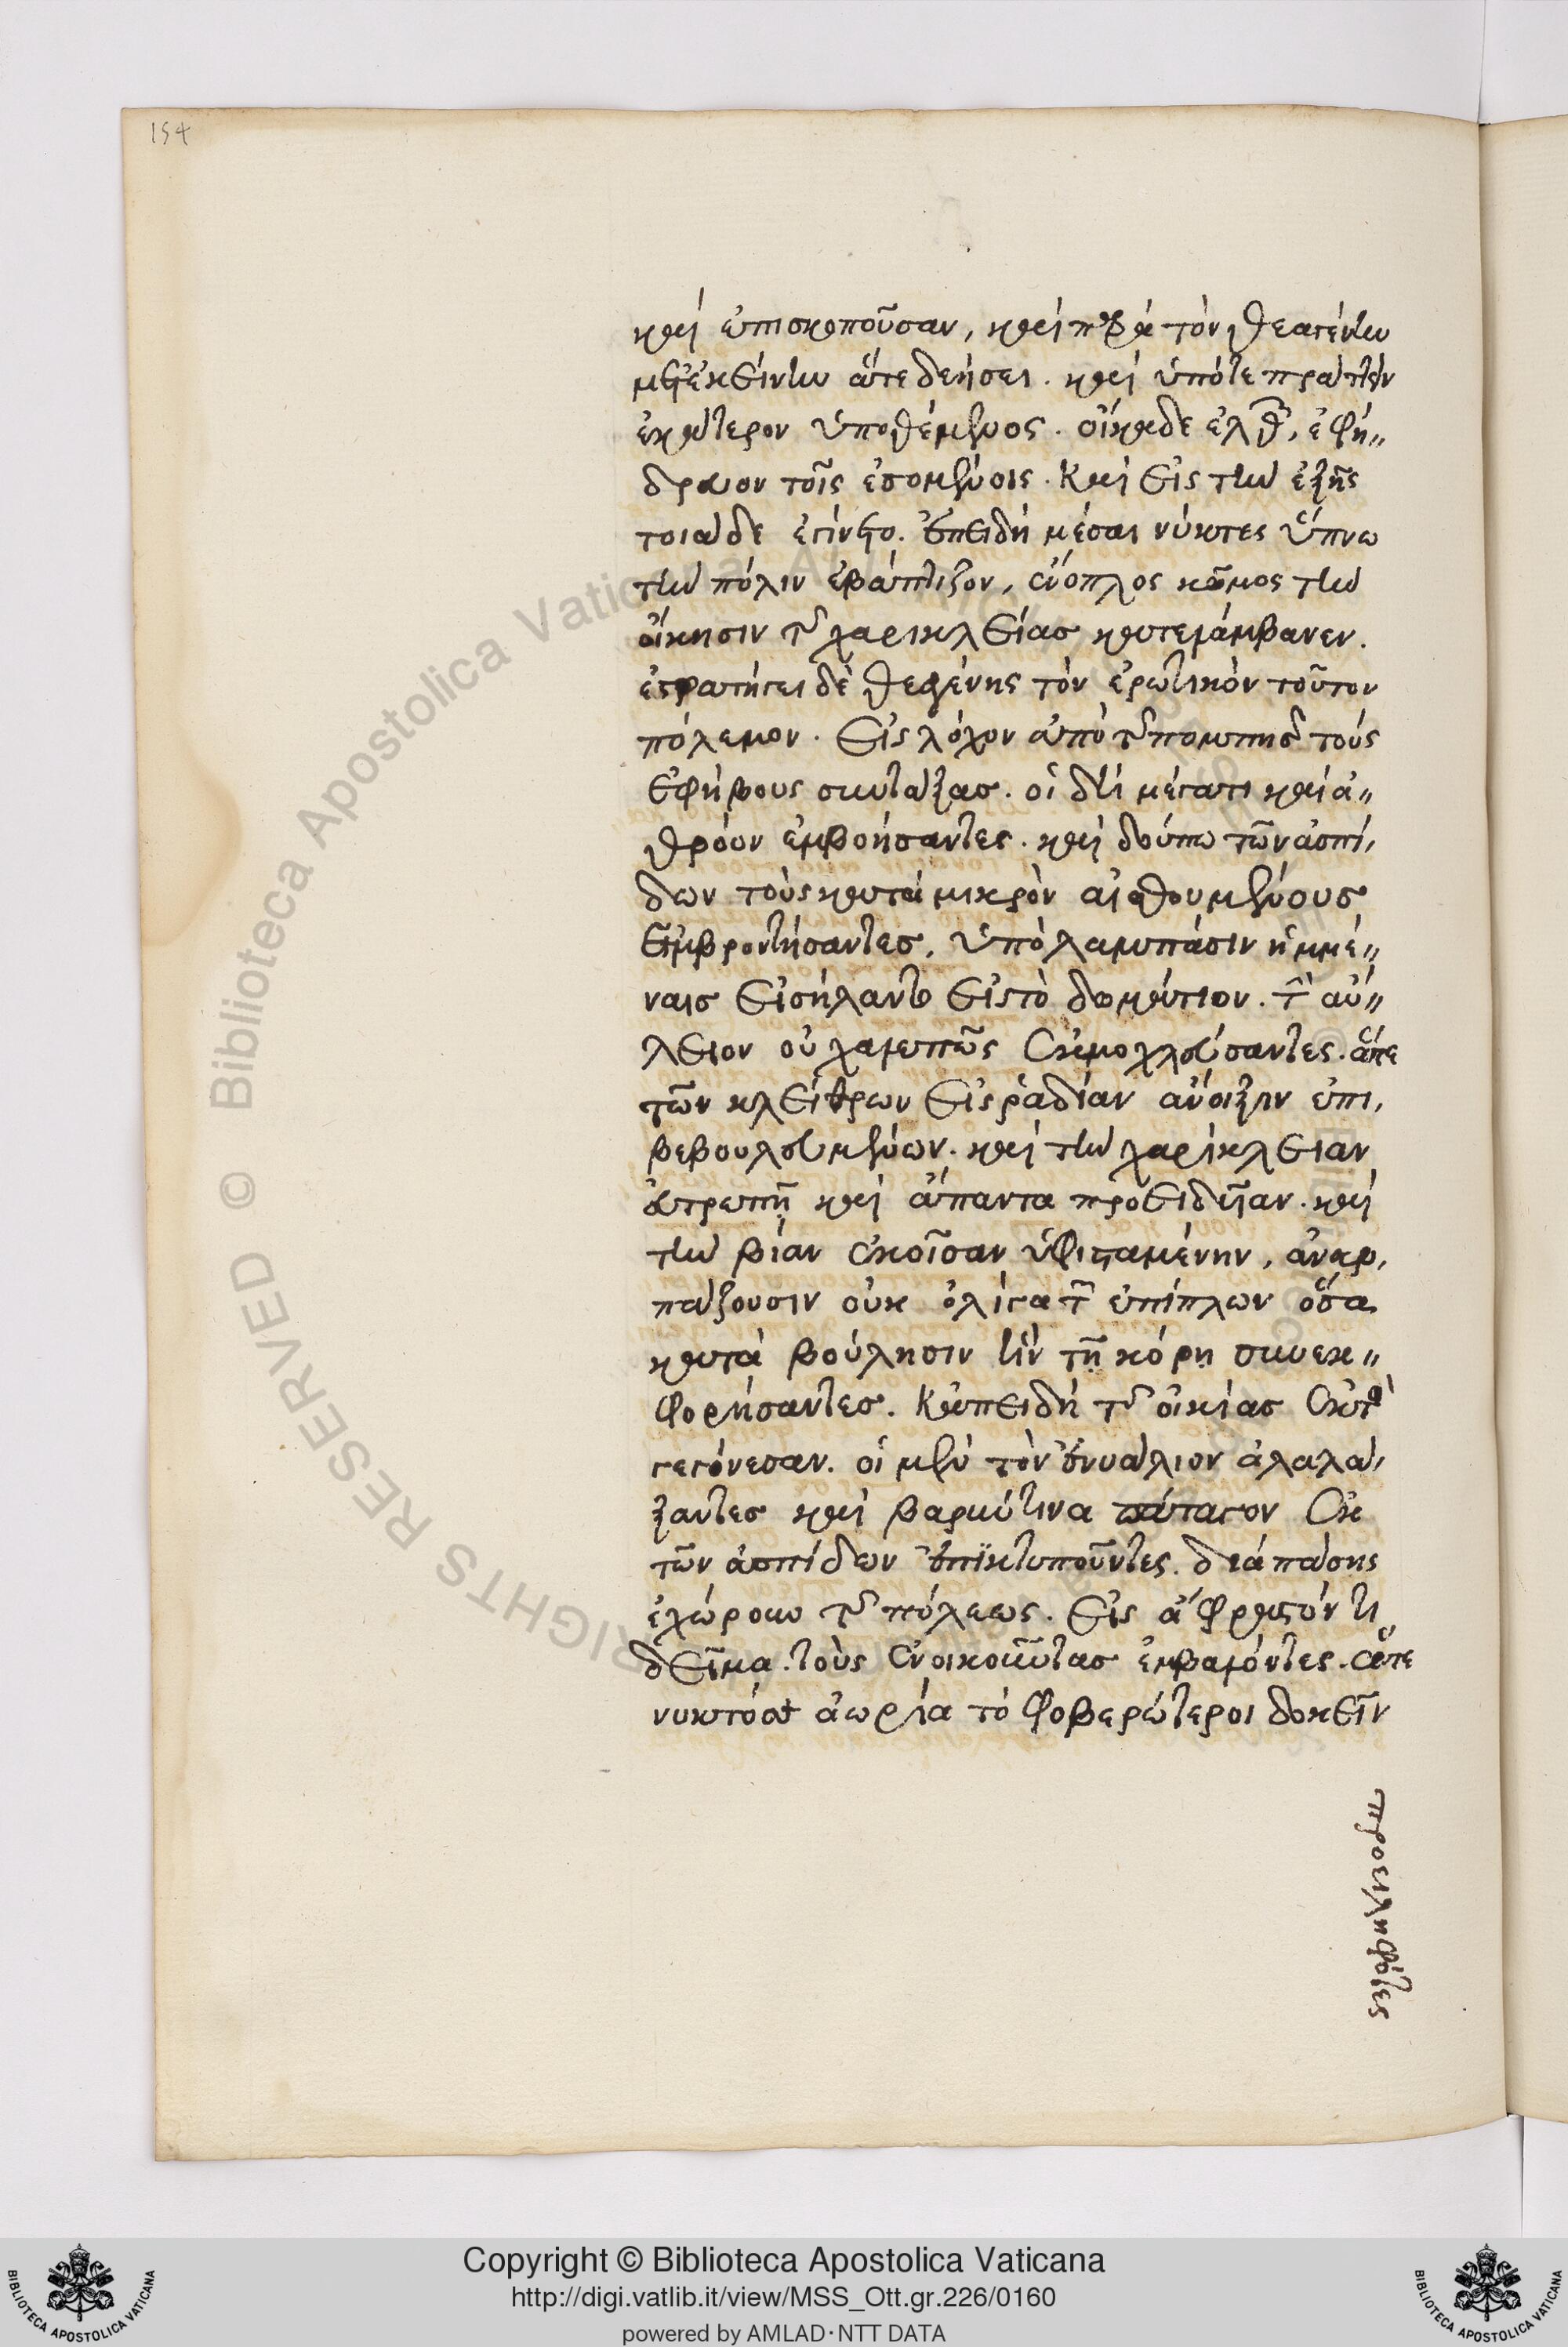 154
καὶ ἐπισκοποῦσαν, καὶ παρὰ τὸν θεαγένην
μετεκείνην ἅτε δεήσει. καὶ ὑπότε πράττειν
ἑκάτερον ὑποθέμενος. οἴκαδε ἐλθὼν, ἐφή〃
δρευον τοῖς ἐσομένοις. Καὶ εἰς τὴν ἑξῆς
τοιάδε ἐγίνετο. ἐπειδὴ μέσαι νύκτες ὕπνω
τὴν πόλιν ἐβάπτιζον, ἔνοπλος κῶμος τὴν
οἴκησιν τῆς χαρικλείας κατελάμβανεν.
ἐστρατήγει δὲ θεαγένης τὸν ἐρωτικὸν τοῦτον
πόλεμον. Εἰς λόχον ἀπὸ τῆς πομπῆς τοὺς
ἐφήβους συντάξας. οἱ δὴ μέγατι καὶ ἀ〃
θρόον ἐμβοήσαντες. καὶ δούπω τῶν ἀσπί,
δων τοὺς κατὰ μικρὸν αἰσθομένους
ἐμβροντήσαντες, ὑπὸ λαμπάσιν ἡμμέ〃
ναις εἰσήλαντο εἰς τὸ δωμάτιον. τὴν αὔ〃
λειον οὐ χαλεπῶς ἐκμοχλεύσαντες. ἅτε
τῶν κλείθρων εἰς ῥαδίαν ἄνοιξιν ἐπι,
βεβουλευμένων. καὶ τὴν χαρίκλειαν
εὐτρεπῆ καὶ ἅπαντα προειδυῖαν. καὶ
τὴν βίαν ἑκοῦσαν ὑφισταμένην, ἀναρ,
πάζουσιν οὐκ ὀλίγα τῶν ἐπίπλων ὅσα
κατὰ βούλησιν ἦν τῆ κόρη συνεκ〃
φορήσαντες. Κἀπειδὴ τῆς οἰκίας ἐκτὸς
γεγόνεσαν. οἱ μὲν τὸν ἐνυάλιον ἀλαλά,
ξαντες καὶ βαρύτινα πάταγον ἐκ
τῶν ἀσπίδων ἐπικτυποῦντες. διὰ πάσης
ἐχώρουν τῆς πόλεως. Εἰς ἄφραστόν τι
δεῖμα. τοὺς ἐνοικοῦντας ἐμβαλόντες. ἅτε
νυκτός τε ἀωρία τὸ φοβερώτεροι δοκεῖν
προειληφότες
Copyright © Biblioteca Apostolica Vaticana
http://digi.vatlib.it/view/MSS_Ott.gr.226/0160
powered by AMLAD·NTT DATA